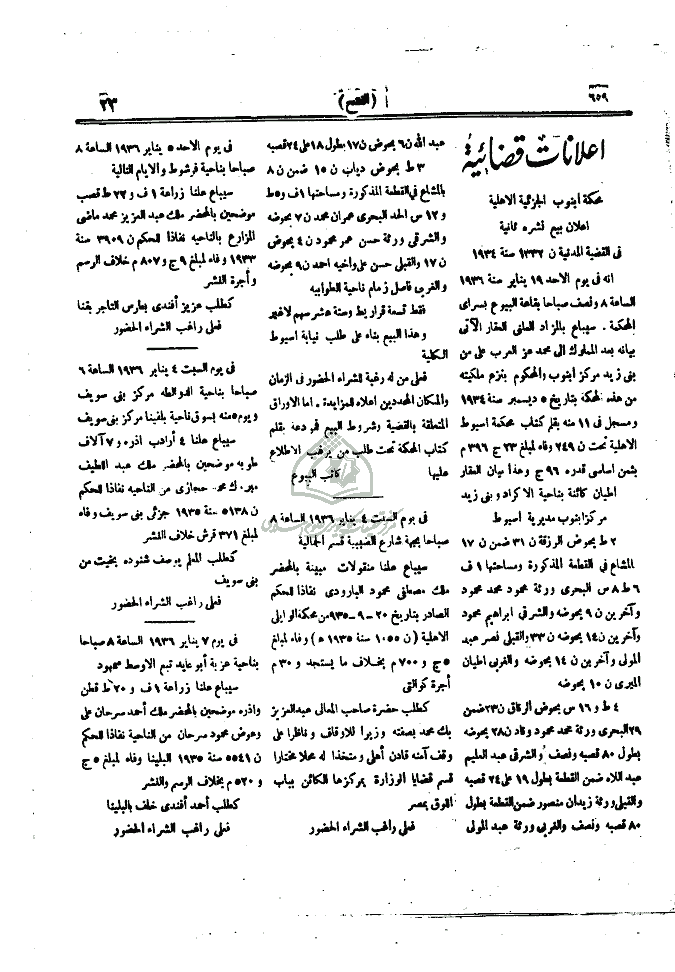 ٦٥٩
(الفتح)
٢٣
اعلانات قضائية
محكمة ابنوب الجزئية الاهلية
اعلان بيع نشره ثانية
فى القضية المدنية ن ١٣٣٧ سنة ١٩٣٤
انه فى يوم الاحد ١٩ يناير سنة ١٩٣٦
الساعة ٨ ونصف صباحا بقاعة البيوع بسراى
المحكمة . سيباع بالمزاد العلنى العقار الآتى
بيانه بعد المملوك الى محمد عز العرب على من
بنى زيد مركز ابنوب والمحكوم بنزع ملكيته
من هذه المحكمة بتاريخ ٥ ديسمبر سنة ١٩٣٤
ومسجل فى ١١ منه بقلم كتاب محكمة اسيوط
الاهلية تحت ن ٢٤٩ وفاء لمبلغ ٢٣ ج ٣٩٦ م
بثمن اساسى قدره ٩٦ ج وهذا بيان العقار
اطيان كائنة بناحية الاكراد و بنى زيد
مركز ابنوب مديرية أسيوط
٢ ط بحوض الرزقة ن ٣١ ضمن ن ١٧
المشاع فى القطعة المذكورة ومساحتها ١ ف
٦ ط ٨ س البحرى ورثة محمود محمد محمود
وآخرين ن ٩ بحوضه والشرقى ابراهيم محمود
وآخرين ن ١٤ بحوضه ن ٣٣ والقبلى نصر عبد
المولى وآخرين ن ١٤ بحوضه والغربى اطيان
الميرى ن ١٠ بحوضه
٤ ط و ١٦ س بحوض الزقاق ن ٢٣ ضمن
٢٩ البحرى ورثة محمد محمود وقاد ن ٢٨ بحوضه
بطول ٨٠ قصبه ونصف والشرقى عبد العليم
عبد اللاه ضمن القطعة بطول ١٩ على ٢٤ قصبه
والقبلى ورثة زيدان منصور ضمن القطعة بطول
٨٠ قصبه ونصف والغربى ورثة عبد المولى
عبد الله ن ٦ بحوض ن ١٧ بطول ١٨ على ٢٤ قصبه
٣ ط بحوض دياب ن ١٥ ضمن ن ٨
بالمشاع فى القطعة المذكورة ومساحتها ١ ف و ٥ ط
و ١٢ س الحد البحرى عمران محمد ن ٧ بحوضه
والشرقى ورثة حسن عمر محمود ن ٤ بحوض
ن ١٧ والقبلى حسن على وأخيه احمد ن ٩ بحوضه
والغربى فاصل زمام ناحية الطوابيه
فقط تسعة قراريط وستة عشر سهم لاغير
وهذا البيع بناء على طلب نيابة اسيوط
الكلية
فعلى من له رغبة للشراء الحضور فى الزمان
والمكان المحددين اعلاه للمزايدة . اما الاوراق
المتعلقة بالقضية وشروط البيع فمودعه بقلم
كتاب المحكمة تحت طلب من يرغب الاطلاع
عليها كاتب البيوع
فى يوم السبت ٤ يناير ١٩٣٦ الساعة ٨
صباحا بجهة شارع الضبيبة قسم الجمالية
سيباع علنا منقولات مبينة بالمحضر
ملك مصطفى محمود البارودى نفاذا للحكم
الصادر بتاريخ ٢٠-٩-٩٣٥ من محكمة الوايلى
الاهلية (ن ١٠٥٥ سنة ١٩٣٥ ٥) وفاء لمبلغ
٥ ج و ٧٠٠ م بخلاف ما يستجد و ٣٠ م
أجرة كوالتى
كطلب حضرة صاحب المعالى عبد العزيز
بك محمد بصفته وزيرا للاوقاف وناظرا على
وقف آمنه قادن أهلى ومتخذا له محلا مختارا
قسم قضايا الوزارة بمركزها الكائن بباب
اللوق بمصر
فعلى راغب الشراء الحضور
فى يوم الاحد ٥ يناير ١٩٣٦ الساعة ٨
صباحا بناحية فرشوط والايام التالية
سيباع علنا زراعة ١ ف و ٢٢ ط قصب
موضحين بالمحضر ملك عبد العزيز محمد ماضى
المزارع بالناحيه نفاذا للحكم ن ٣٩٥٩ سنة
١٩٣٣ وفاء لمبلغ ٩ ج و ٨٠٧ م خلاف الرسم
وأجرة النشر
كطلب عزيز أفندى بطارس التاجر بقنا
فعلى راغب الشراء الحضور
فى يوم السبت ٤ يناير ١٩٣٦ الساعة ٦
صباحا بناحية الدوالطه مركز بنى سويف
ويوم ٥ منه بسوق ناحية بلفينا مركز بنى سويف
سيباع علنا ٤ أرادب اذره و ٧ آلاف
طوبه موضحين بالمحضر ملك عبد اللطيف
مبروك محمد حجازى من الناحيه نفاذا للحكم
ن ٥١٣٨ سنة ١٩٣٥ جزئى بنى سويف وفاء
لمبلغ ٣٧١ قرش خلاف النشر
كطلب المعلم يوسف شنوده بخيت من
بنى سويف
فعلى راغب الشراء الحضور
فى يوم ٧ يناير ١٩٣٦ الساعة ٨ صباحا
بناحية عزبة أبو عايد تبع الاوسط سمهود
سيباع علنا زراعة ١ ف و ٢٠ ط قطن
واذره موضحين بالمحضر ملك أحمد سرحان على
وعوض محمود سرحان من الناحية نفاذا للحكم
ن ٥٥٤١ سنة ١٩٣٥ البلينا وفاء لمبلغ ٥ ج
و ٥٢٠ م بخلاف الرسم والنشر
كطلب أحمد أفندى خلف بالبلينا
فعلى راغب الشراء الحضور